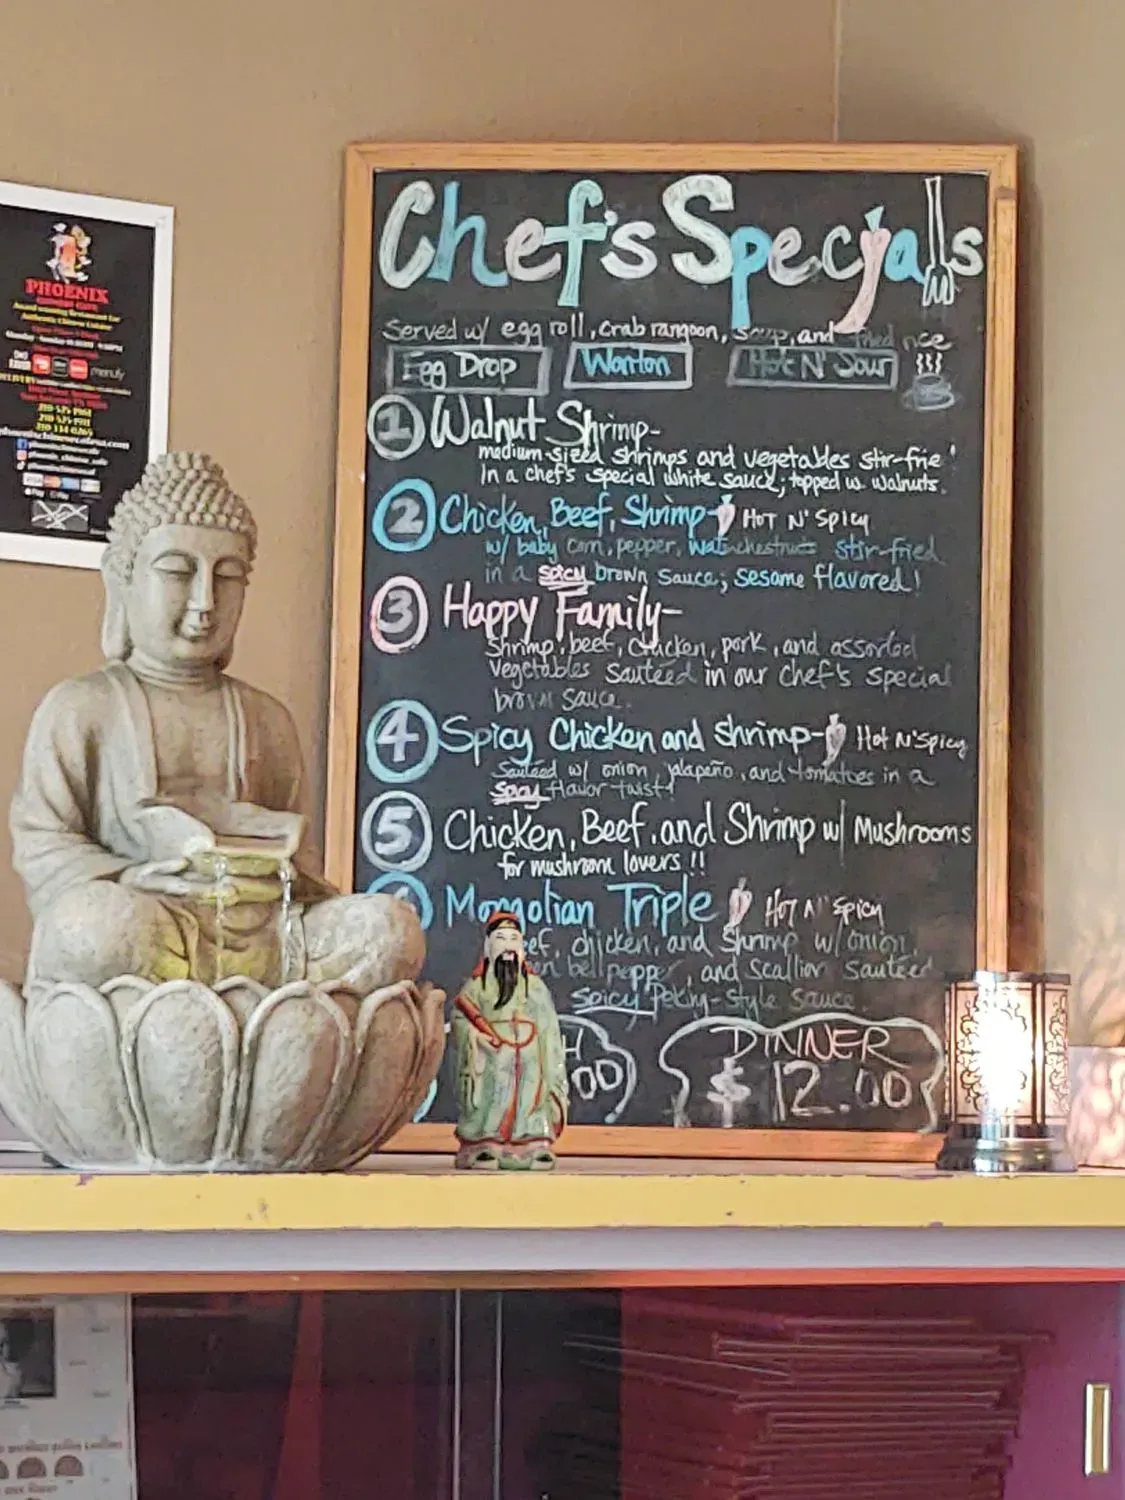 PHOENIX
Award winning Restaurant For
Authentic Chinese Cuisine
menufy
210-525-1961
210-525-1911
Chef's Specials
Served w/ egg roll, crab rangoon, soup, and fried rice
Egg Drop
Wonton
Hot N' Sour
1 Walnut Shrimp-
medium-sized shrimps and vegetables stir-frie
In a chef's special white sauce; topped w. walnuts.
2 Chicken, Beef, Shrimp- Hot N' Spicy
w/ baby corn, pepper, waterchestnuts stir-fried
in a spicy brown sauce; sesame flavored!
3 Happy Family-
Shrimp, beef, chicken, pork, and assorted
vegetables sautéed in our chef's special
brown sauce.
4 Spicy Chicken and shrimp- Hot N' Spicy
Sautéed w/ onion, jalapeño, and tomatoes in a
spicy flavor twist!
5 Chicken, Beef, and Shrimp w/ Mushrooms
for mushroom lovers!!
Mongolian Triple Hot N' Spicy
eef, chicken, and shrimp w/ onion,
en bell pepper, and scallion sautéed
spicy Peking-style sauce.
H
00
DINNER
$12.00